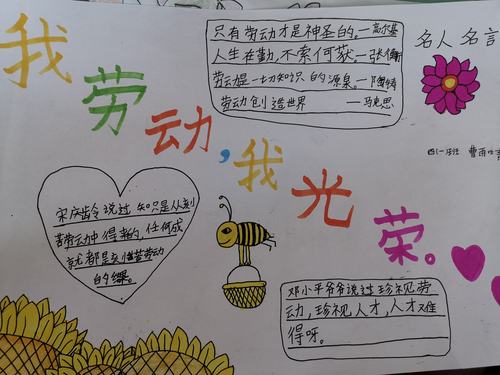 我劳动,我光荣。
名人名言
只有劳动才是神圣的。—高尔基
人生在勤,不索何获。—张衡
劳动是一切知识的源泉。—陶铸
劳动创造世界 —马克思
四(一)班 曹雨
宋庆龄说过知识是从刻
苦劳动中得来的,任何成
就都是刻苦劳动
的结果。
邓小平爷爷说过珍视劳
动,珍视人才,人才难
得呀。